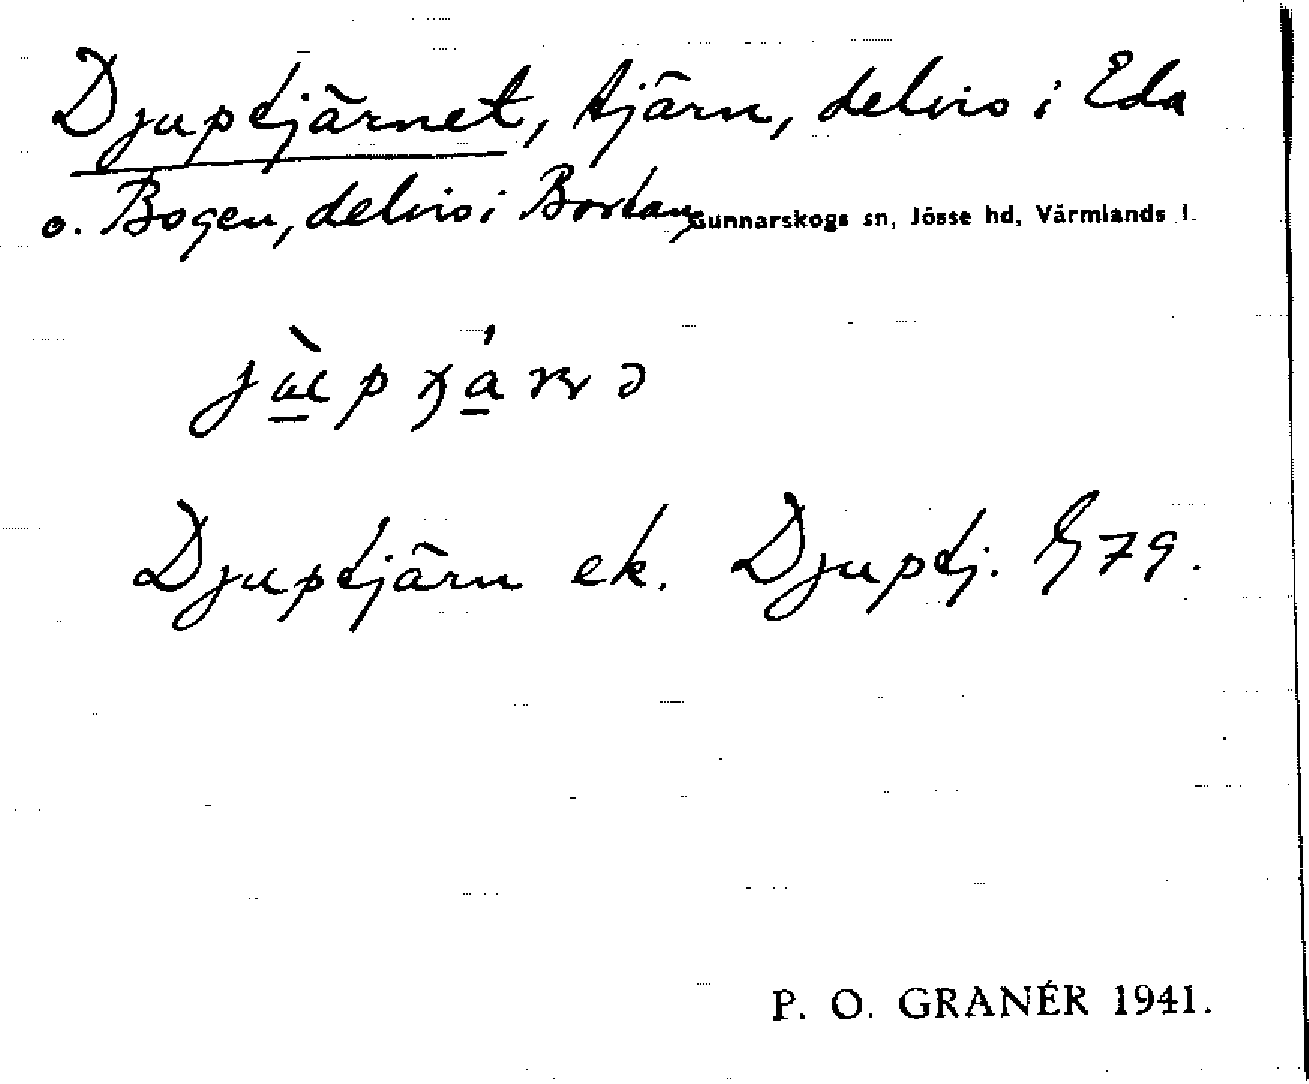 Djuptjärnet, tjärn, delvis i Eda
o. Bogen, delvis i Bortan, Gunnarskogs sn, Jösse hd, Värmlands l.
Djuptjärn ek. Djuptj. G 79.
P. O. GRANÉR 1941.